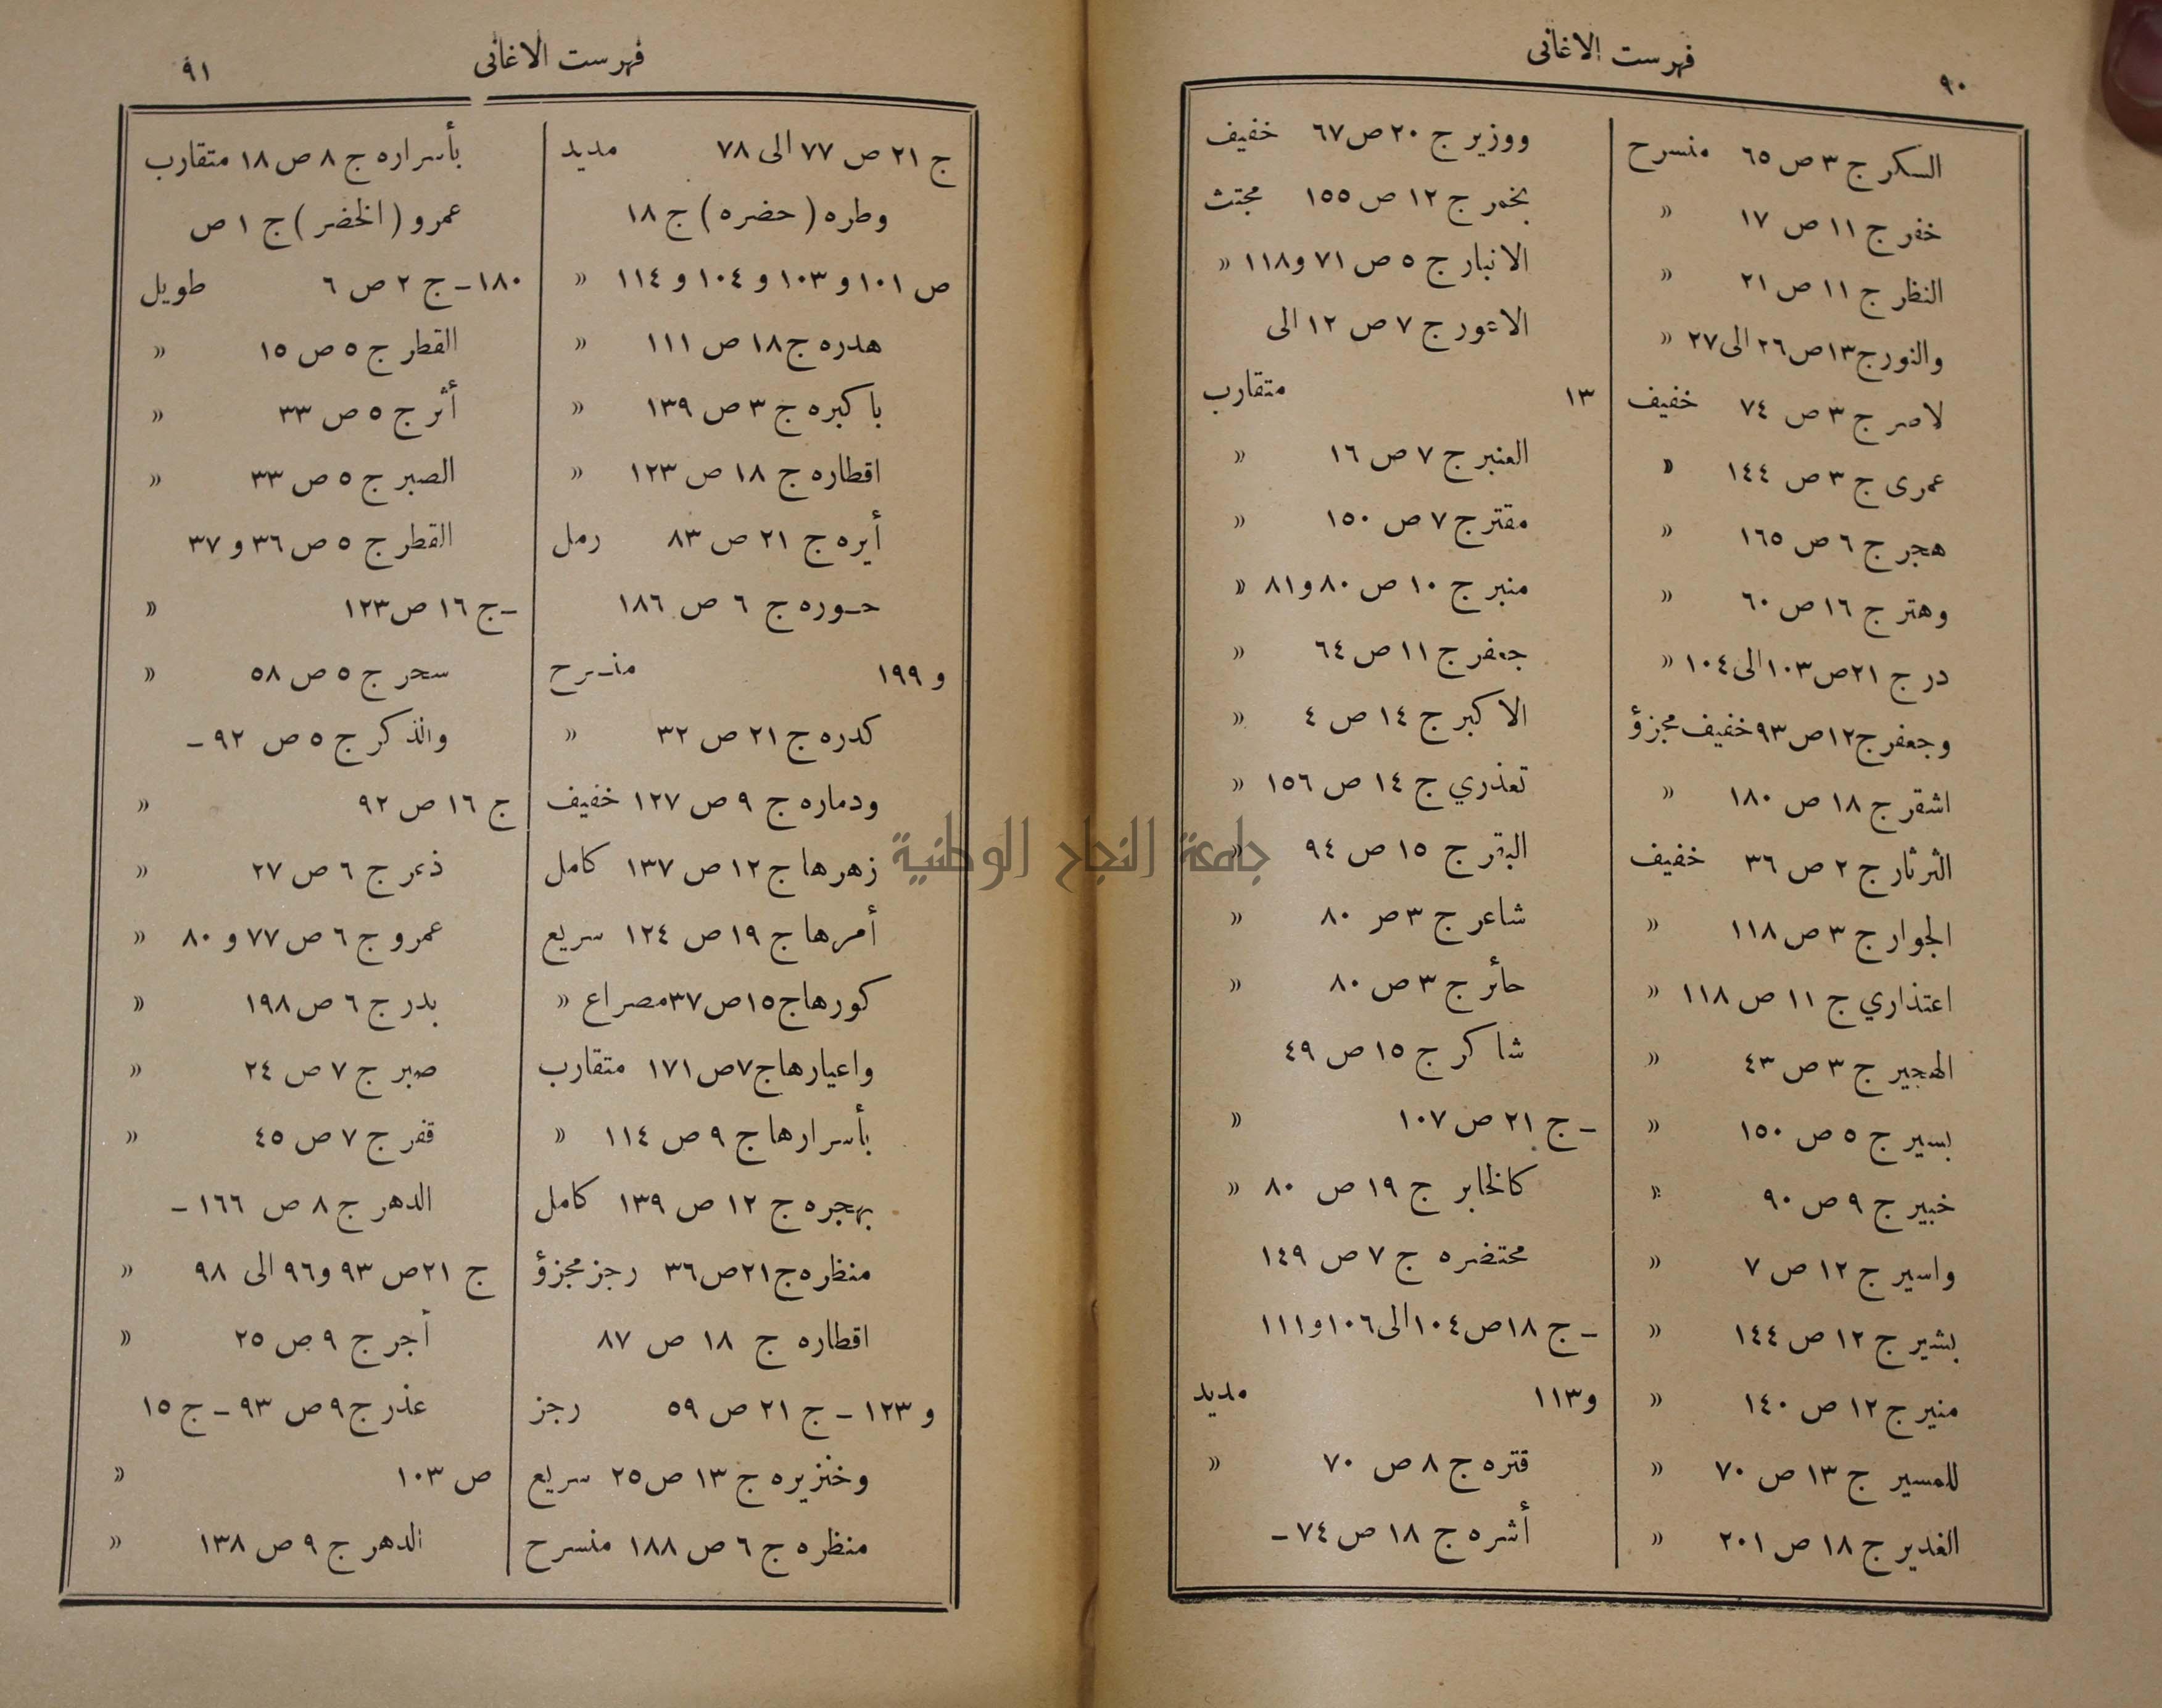 ٩٠
فهرست الاغانى
السكر ج ٣ ص ٦٥ منسرح
خفر ج ١١ ص ١٧ «
النظر ج ١١ ص ٢١ «
والنور ج ١٣ ص ٢٦ الى ٢٧ «
لامر ج ٣ ص ٧٤ خفيف
عمرى ج ٣ ص ١٤٤ «
هجر ج ٦ ص ١٦٥ «
وهتر ج ١٦ ص ٦٠ «
در ج ٢١ ص ١٠٣ الى ١٠٤ «
وجعفر ج ١٢ ص ٩٣ خفيف مجزؤ
اشقر ج ١٨ ص ١٨٠ «
الثرثار ج ٢ ص ٣٦ خفيف
الجوار ج ٣ ص ١١٨ «
اعتذاري ج ١١ ص ١١٨ «
الهجير ج ٣ ص ٤٣ «
بسير ج ٥ ص ١٥٠ «
خبير ج ٩ ص ٩٠ «
واسير ج ١٢ ص ٧ «
بشير ج ١٢ ص ١٤٤ «
منير ج ١٢ ص ١٤٠ «
للمسير ج ١٣ ص ٧٠ «
الغدير ج ١٨ ص ٢٠١ «
ووزير ج ٢٠ ص ٦٧ خفيف
بخمر ج ١٢ ص ١٥٥ مجتث
الانبار ج ٥ ص ٧١ و ١١٨ «
الاعور ج ٧ ص ١٢ الى
١٣ متقارب
العنبر ج ٧ ص ١٦ «
مقتر ج ٧ ص ١٥٠ «
منبر ج ١٠ ص ٨٠ و ٨١ «
جعفر ج ١١ ص ٦٤ «
الاكبر ج ١٤ ص ٤ «
تعذري ج ١٤ ص ١٥٦ «
البتر ج ١٥ ص ٩٤ «
شاعر ج ٣ ص ٨٠ «
حائر ج ٣ ص ٨٠ «
شاكر ج ١٥ ص ٤٩
– ج ٢١ ص ١٠٧ «
كالخابر ج ١٩ ص ٨٠ «
محتضره ج ٧ ص ١٤٩
– ج ١٨ ص ١٠٤ الى ١٠٦ و ١١١
و ١١٣ مديد
قتره ج ٨ ص ٧٠ «
أشره ج ١٨ ص ٧٤ –
فهرست الاغانى
٩١
ج ٢١ ص ٧٧ الى ٧٨ مديد
وطره (حضره) ج ١٨
ص ١٠١ و ١٠٣ و ١٠٤ و ١١٤ «
هدره ج ١٨ ص ١١١ «
باكبره ج ٣ ص ١٣٩ «
اقطاره ج ١٨ ص ١٢٣ «
أيره ج ٢١ ص ٨٣ رمل
حوره ج ٦ ص ١٨٦
و ١٩٩ منسرح
كدره ج ٢١ ص ٣٢ «
ودماره ج ٩ ص ١٢٧ خفيف
زهرها ج ١٢ ص ١٣٧ كامل
أمرها ج ١٩ ص ١٢٤ سريع
كورها ج ١٥ ص ٣٧ مصراع «
واعيارها ج ٧ ص ١٧١ متقارب
بأسرارها ج ٩ ص ١١٤ «
بهجره ج ١٢ ص ١٣٩ كامل
منظره ج ٢١ ص ٣٦ رجز مجزؤ
اقطاره ج ١٨ ص ٨٧
و ١٢٣ – ج ٢١ ص ٥٩ رجز
وخنزيره ج ١٣ ص ٢٥ سريع
منظره ج ٦ ص ١٨٨ منسرح
بأسراره ج ٨ ص ١٨ متقارب
عمرو (الخضر) ج ١ ص
١٨٠ – ج ٢ ص ٦ طويل
القطر ج ٥ ص ١٥ «
أثر ج ٥ ص ٣٣ «
الصبر ج ٥ ص ٣٣ «
القطر ج ٥ ص ٣٦ و ٣٧
– ج ١٦ ص ١٢٣ «
سحر ج ٥ ص ٥٨ «
والذكر ج ٥ ص ٩٢ –
ج ١٦ ص ٩٢ «
ذعر ج ٦ ص ٢٧ «
عمرو ج ٦ ص ٧٧ و ٨٠ «
بدر ج ٦ ص ١٩٨ «
صبر ج ٧ ص ٢٤ «
قفر ج ٧ ص ٤٥ «
الدهر ج ٨ ص ١٦٦ –
ج ٢١ ص ٩٣ و ٩٦ الى ٩٨ «
أجر ج ٩ ص ٢٥ «
عذر ج ٩ ص ٩٣ – ج ١٥
ص ١٠٣ «
الدهر ج ٩ ص ١٣٨ «
جامعة النجاح الوطنية